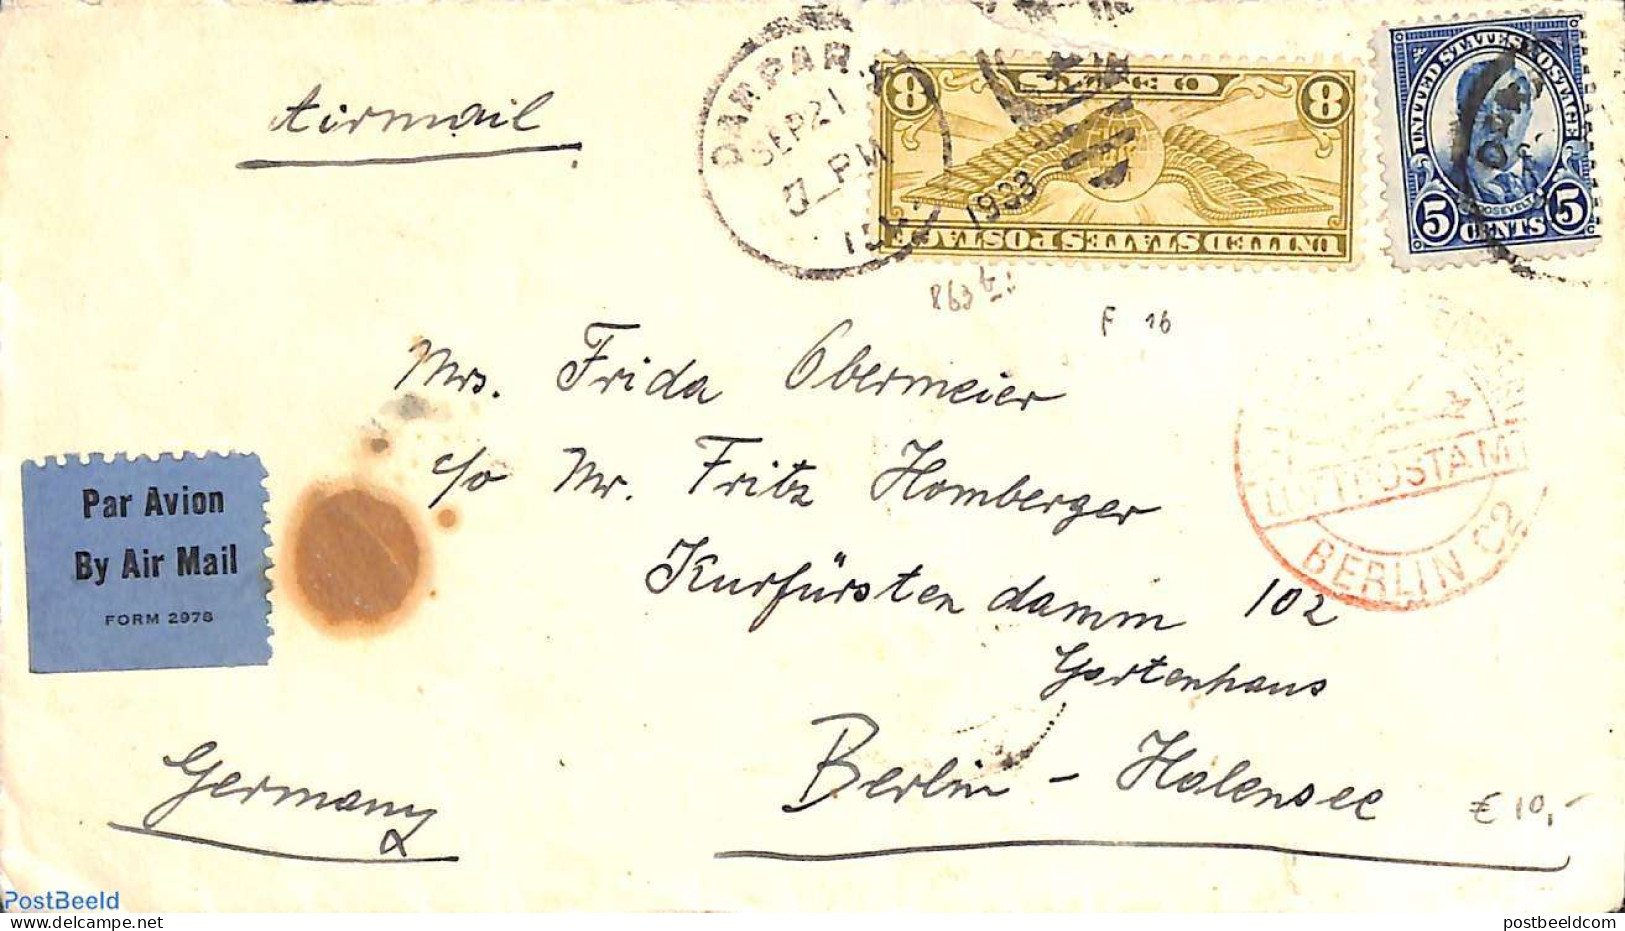 Airmail
SEP 21
PM
1933
8 CENTS 8
UNITED STATES POSTAGE
UNITED STATES POSTAGE
ROOSEVELT
5 CENTS 5
863 b.!
F 16
Mrs. Frida Obermeier
c/o Mr. Fritz Homberger
Kurfürsten damm 102
Gartenhaus
Berlin - Halensee
LUFTPOSTAMT
BERLIN C2
Par Avion
By Air Mail
FORM 2978
Germany
€ 10,-
PostBeeld
www.postbeeld.net
postbeeldcom